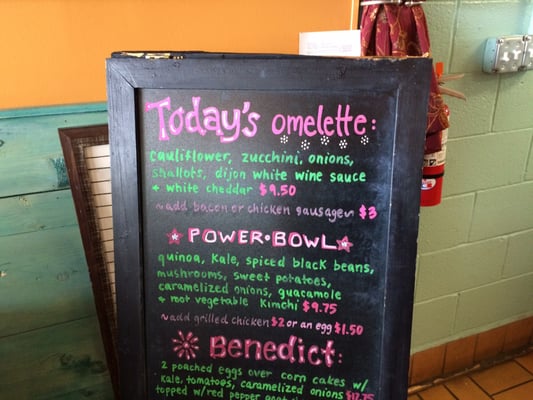 Today's omelette:
cauliflower, zucchini, onions,
shallots, dijon white wine sauce
+ white cheddar $9.50
~add bacon or chicken sausage~ $3
POWER•BOWL
quinoa, kale, spiced black beans,
mushrooms, sweet potatoes,
caramelized onions, guacamole
+ root vegetable kimchi $9.75
~add grilled chicken $2 or an egg $1.50
Benedict:
2 poached eggs over corn cakes w/
kale, tomatoes, caramelized onions $12.75
topped w/red pepper goat